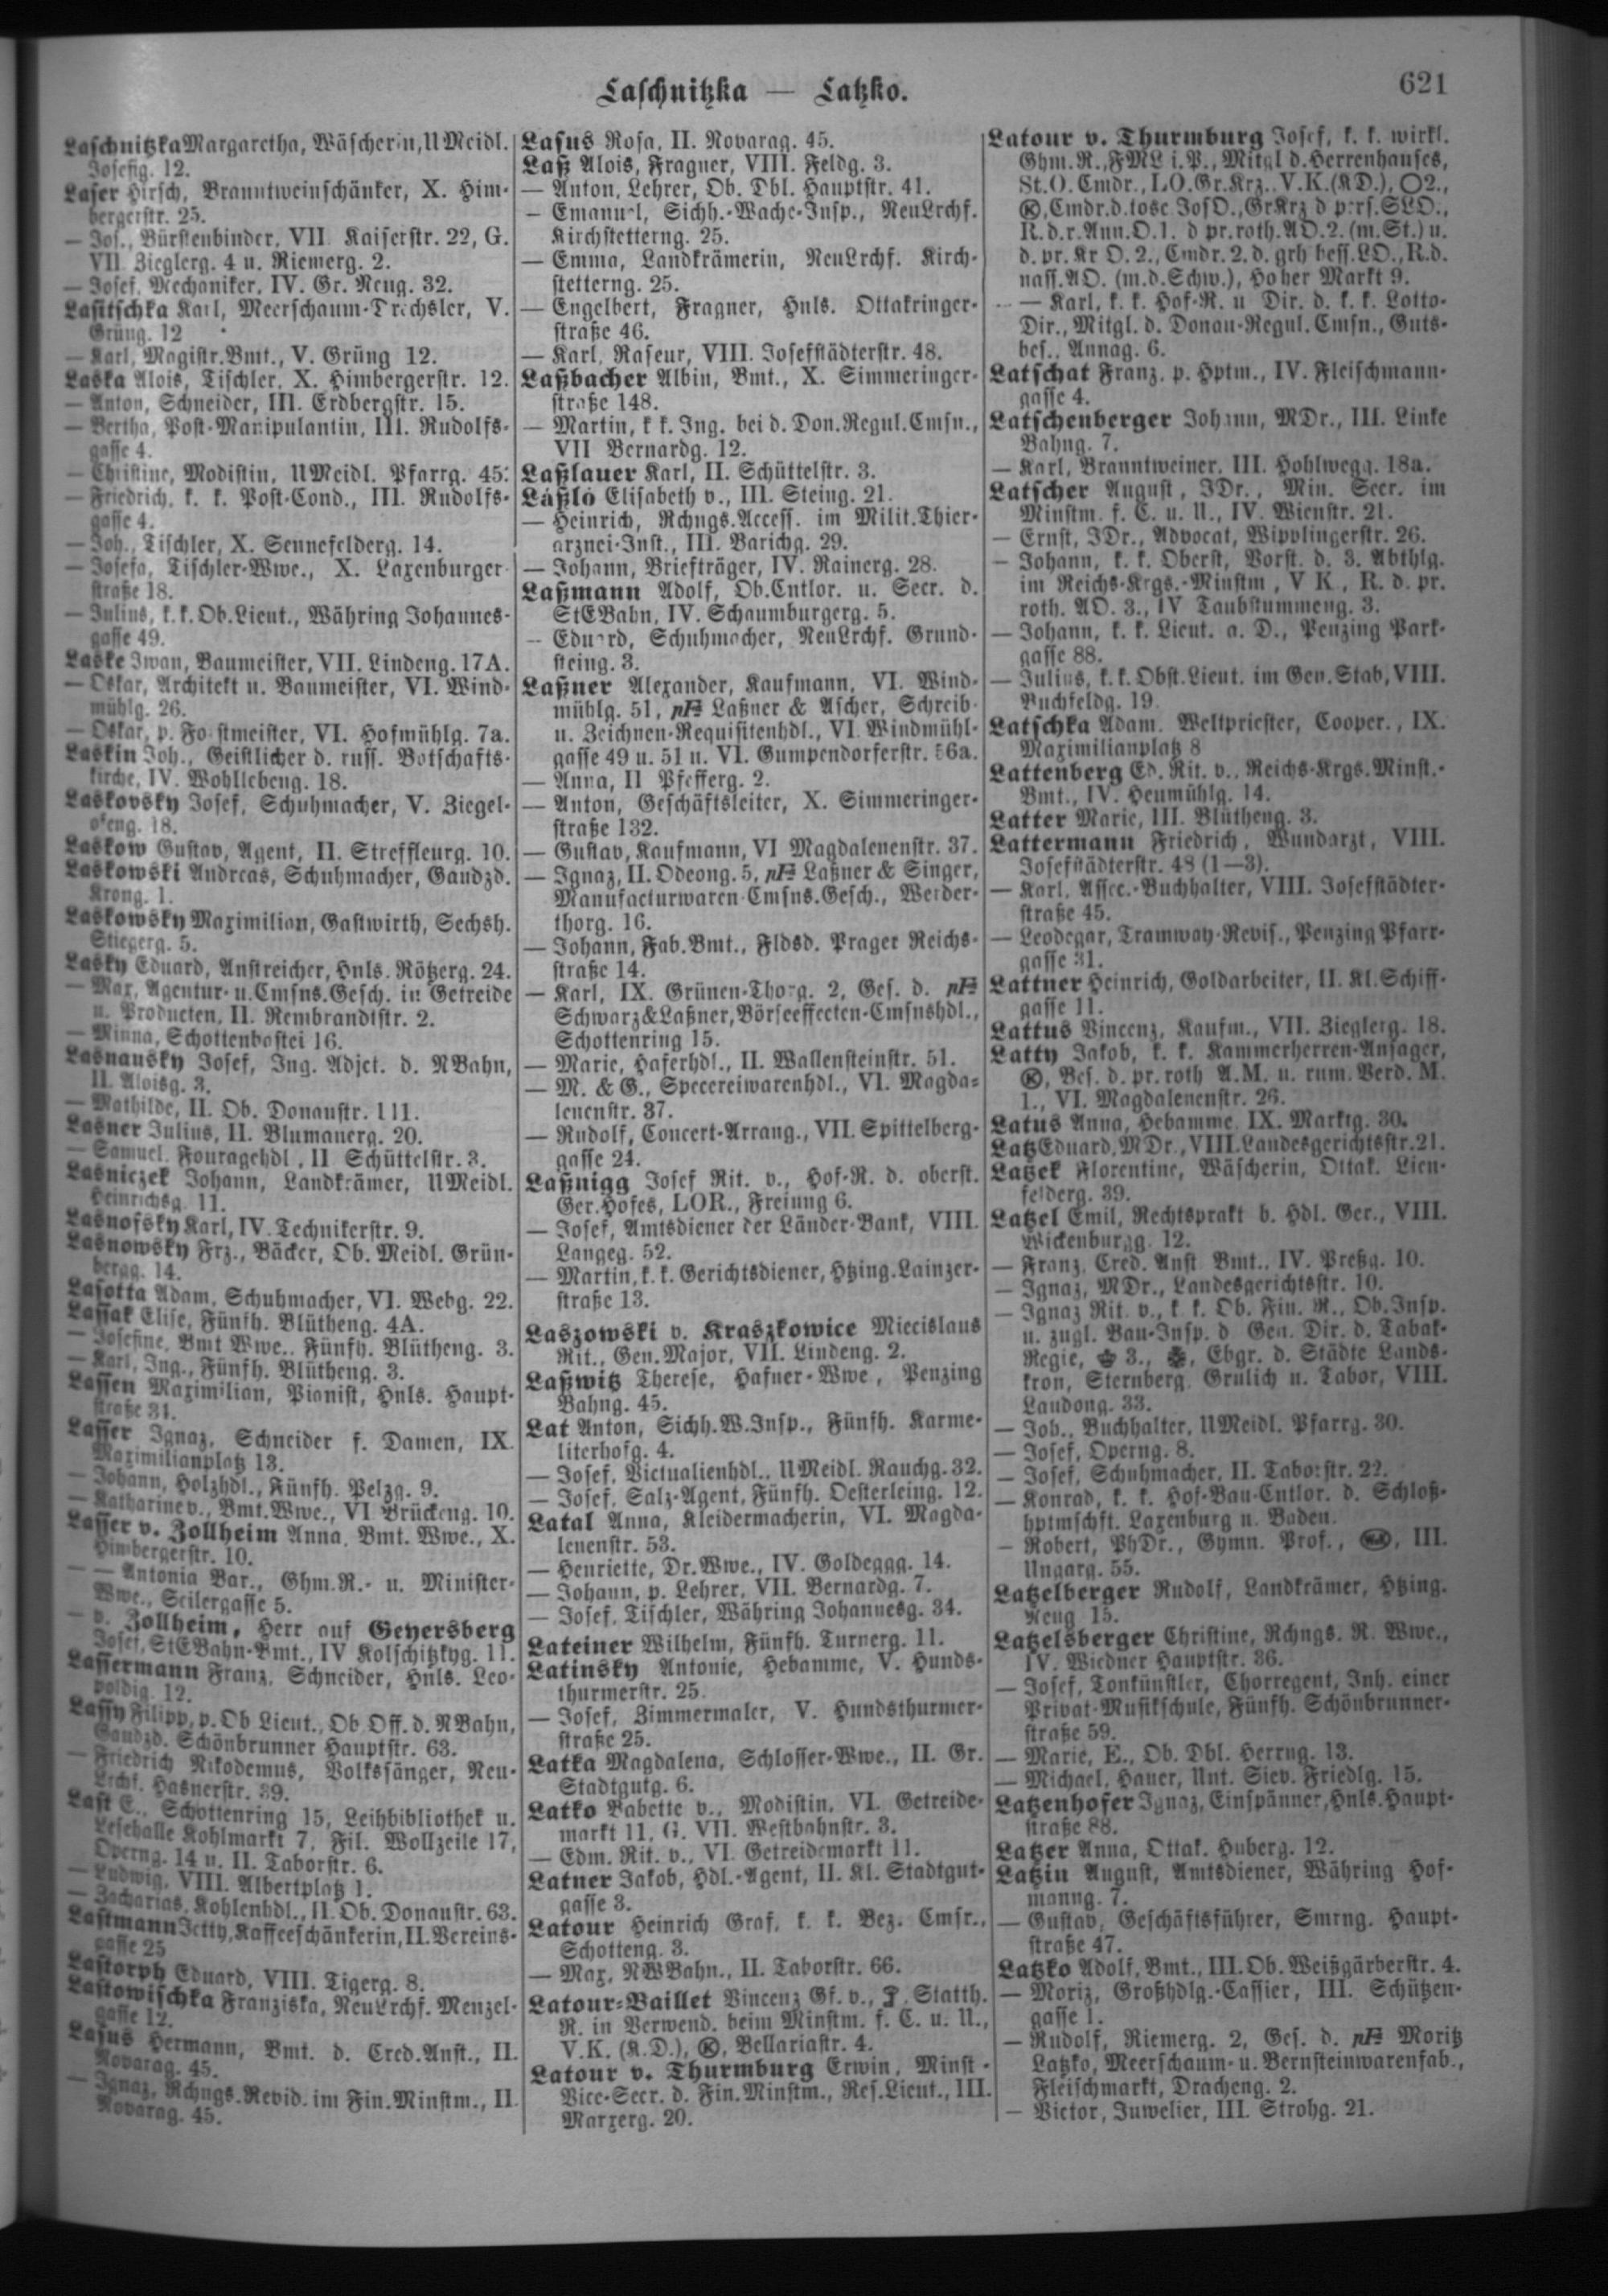 Laschnitzka — Latzko.
621
Laschnitzka Margaretha, Wäscherin, UMeidl.
Josefig. 12.
Laser Hirsch, Branntweinschänker, X. Him-
bergerstr. 25.
— Jos., Bürstenbinder, VII. Kaiserstr. 22, G.
VII Zieglerg. 4 u. Riemerg. 2.
— Josef, Mechaniker, IV. Gr. Neug. 32.
Lasitschka Karl, Meerschaum-Drechsler, V.
Grüng. 12
— Karl, Magistr.Bmt., V. Grüng 12.
Laska Alois, Tischler, X. Himbergerstr. 12.
— Anton, Schneider, III. Erdbergstr. 15.
— Bertha, Post-Manipulantin, III. Rudolfs-
gasse 4.
— Christine, Modistin, UMeidl. Pfarrg. 45.
— Friedrich, k. k. Post-Cond., III. Rudolfs-
gasse 4.
— Joh., Tischler, X. Sennefelderg. 14.
— Josefa, Tischler-Wwe., X. Laxenburger-
straße 18.
— Julius, k.k. Ob.Lieut., Währing Johannes-
gasse 49.
Laske Iwan, Baumeister, VII. Lindeng. 17A.
— Oskar, Architekt u. Baumeister, VI. Wind-
mühlg. 26.
— Oskar, p. Forstmeister, VI. Hofmühlg. 7a.
Laskin Joh., Geistlicher d. russ. Botschafts-
kirche, IV. Wohllebeng. 18.
Laskovsky Josef, Schuhmacher, V. Ziegel-
ofeng. 18.
Laskow Gustav, Agent, II. Streffleurg. 10.
Laskowski Andreas, Schuhmacher, Gaudzd.
Krong. 1.
Laskowsky Maximilian, Gastwirth, Sechsh.
Stiegerg. 5.
Lasky Eduard, Anstreicher, Hnls. Rötzerg. 24.
— Max, Agentur- u.Cmsns.Gesch. in Getreide
u. Producten, II. Rembrandtstr. 2.
— Minna, Schottenbastei 16.
Lasnausky Josef, Ing. Adjct. d. NBahn,
II. Aloisg. 3.
— Mathilde, II. Ob. Donaustr. 111.
Lasner Julius, II. Blumauerg. 20.
— Samuel, Fouragehdl., II Schüttelstr. 3.
Lasniczek Johann, Landkrämer, UMeidl.
Heinrichsg. 11.
Lasnofsky Karl, IV. Technikerstr. 9.
Lasnowsky Frz., Bäcker, Ob. Meidl. Grün-
bergg. 14.
Lasotta Adam, Schuhmacher, VI. Webg. 22.
Lassak Elise, Fünfh. Blütheng. 4A.
— Josefine, Bmt Wwe., Fünfh. Blütheng. 3.
— Karl, Ing., Fünfh. Blütheng. 3.
Lassen Maximilian, Pianist, Hnls. Haupt-
straße 31.
Lasser Ignaz, Schneider f. Damen, IX.
Maximilianplatz 13.
— Johann, Holzhdl., Fünfh. Pelzg. 9.
— Katharine v., Bmt.Wwe., VI Brückeng. 10.
Lasser v. Zollheim Anna, Bmt. Wwe., X.
Himbergerstr. 10.
— — Antonia Bar., Ghm.R.- u. Minister-
Wwe., Seilergasse 5.
— v. Zollheim, Herr auf Geyersberg
Josef, StEBahn-Bmt., IV Kolschitzkyg. 11.
Lassermann Franz, Schneider, Hnls. Leo-
poldig. 12.
Lassy Filipp, p. Ob Lieut., Ob Off. d. NBahn,
Gaudzd. Schönbrunner Hauptstr. 63.
— Friedrich Nikodemus, Volkssänger, Neu-
Lrchf. Hasnerstr. 39.
Last E., Schottenring 15, Leihbibliothek u.
Lesehalle Kohlmarkt 7, Fil. Wollzeile 17,
Operng. 14 u. II. Taborstr. 6.
— Ludwig, VIII. Albertplatz 1.
— Zacharias, Kohlenhdl., II. Ob. Donaustr. 63.
Lastmann Jetty, Kaffeeschänkerin, II. Vereins-
gasse 25
Lastorph Eduard, VIII. Tigerg. 8.
Lastowischka Franziska, NeuLrchf. Menzel-
gasse 12.
Lasus Hermann, Bmt. d. Cred.Anst., II.
Novarag. 45.
— Ignaz, Rchngs.Revid. im Fin.Minstm., II.
Novarag. 45.
Lasus Rosa, II. Novarag. 45.
Laß Alois, Fragner, VIII. Feldg. 3.
— Anton, Lehrer, Ob. Dbl. Hauptstr. 41.
— Emanuel, Sichh.-Wache-Insp., NeuLrchf.
Kirchstetterng. 25.
— Emma, Landkrämerin, NeuLrchf. Kirch-
stetterng. 25.
— Engelbert, Fragner, Hnls. Ottakringer-
straße 46.
— Karl, Raseur, VIII. Josefstädterstr. 48.
Laßbacher Albin, Bmt., X. Simmeringer-
straße 148.
— Martin, k k. Ing. bei d. Don.Regul.Cmsn.,
VII Bernardg. 12.
Laßlauer Karl, II. Schüttelstr. 3.
Láßló Elisabeth v., III. Steing. 21.
— Heinrich, Rchngs.Access. im Milit.Thier-
arznei-Inst., III. Barichg. 29.
— Johann, Briefträger, IV. Rainerg. 28.
Laßmann Adolf, Ob.Cntlor. u. Secr. d.
StEBahn, IV. Schaumburgerg. 5.
— Eduard, Schuhmacher, NeuLrchf. Grund-
steing. 3.
Laßner Alexander, Kaufmann, VI. Wind-
mühlg. 51, pF Laßner & Ascher, Schreib-
u. Zeichnen-Requisitenhdl., VI. Windmühl-
gasse 49 u. 51 u. VI. Gumpendorferstr. 56a.
— Anna, II Pfefferg. 2.
— Anton, Geschäftsleiter, X. Simmeringer-
straße 132.
— Gustav, Kaufmann, VI Magdalenenstr. 37.
— Ignaz, II. Odeong. 5, pF Laßner & Singer,
Manufacturwaren-Cmsns.Gesch., Werder-
thorg. 16.
— Johann, Fab.Bmt., Fldsd. Prager Reichs-
straße 14.
— Karl, IX. Grünen-Thorg. 2, Ges. d. pF
Schwarz&Laßner, Börseeffecten-Cmsnshdl.,
Schottenring 15.
— Marie, Haferhdl., II. Wallensteinstr. 51.
— M. & G., Specereiwarenhdl., VI. Magda-
lenenstr. 37.
— Rudolf, Concert-Arrang., VII. Spittelberg-
gasse 24.
Laßnigg Josef Rit. v., Hof-R. d. oberst.
Ger.Hofes, LOR., Freiung 6.
— Josef, Amtsdiener der Länder-Bank, VIII.
Langeg. 52.
— Martin, k. k. Gerichtsdiener, Htzing. Lainzer-
straße 13.
Laszowski v. Kraszkowice Miecislaus
Rit., Gen.Major, VII. Lindeng. 2.
Laßwitz Therese, Hafner-Wwe., Penzing
Bahng. 45.
Lat Anton, Sichh.W.Insp., Fünfh. Karme-
literhofg. 4.
— Josef, Victualienhdl., UMeidl. Rauchg. 32.
— Josef, Salz-Agent, Fünfh. Oesterleing. 12.
Latal Anna, Kleidermacherin, VI. Magda-
lenenstr. 53.
— Henriette, Dr.Wwe., IV. Goldeggg. 14.
— Johann, p. Lehrer, VII. Bernardg. 7.
— Josef, Tischler, Währing Johannesg. 34.
Lateiner Wilhelm, Fünfh. Turnerg. 11.
Latinsky Antonie, Hebamme, V. Hunds-
thurmerstr. 25.
— Josef, Zimmermaler, V. Hundsthurmer-
straße 25.
Latka Magdalena, Schlosser-Wwe., II. Gr.
Stadtgutg. 6.
Latko Babette v., Modistin, VI. Getreide-
markt 11, G. VII. Westbahnstr. 3.
— Edm. Rit. v., VI. Getreidemarkt 11.
Latner Jakob, Hdl.-Agent, II. Kl. Stadtgut-
gasse 3.
Latour Heinrich Graf, k. k. Bez. Cmsr.,
Schotteng. 3.
— Max, NWBahn., II. Taborstr. 66.
Latour-Baillet Vincenz Gf. v., Statth.
R. in Verwend. beim Minstm. f. C. u. U.,
V.K. (K.D.), Ⓚ, Bellariastr. 4.
Latour v. Thurmburg Erwin, Minst.-
Vice-Secr. d. Fin.Minstm., Res.Lieut., III.
Marxerg. 20.
Latour v. Thurmburg Josef, k. k. wirkl.
Ghm.R., FML i.P., Mitgl d. Herrenhauses,
St.O. Cmdr., LO.Gr.Krz., V.K.(KD.), O2.,
Ⓚ, Cmdr.d.tosc JosO., GrKrz d pers.SLO.,
R.d.r.Ann.O.1. d pr.roth.AO.2. (m.St.) u.
d. pr. Kr O. 2., Cmdr. 2. d. grh hess.LO., R.d.
nass.AO. (m.d.Schw.), Hoher Markt 9.
— — Karl, k. k. Hof-R. u Dir. d. k. k. Lotto-
Dir., Mitgl. d. Donau-Regul. Cmsn., Guts-
bes., Annag. 6.
Latschat Franz, p. Hptm., IV. Fleischmann-
gasse 4.
Latschenberger Johann, MDr., III. Linke
Bahng. 7.
— Karl, Branntweiner, III. Hohlwegg. 18a.
Latscher August, JDr., Min. Secr. im
Minstm. f. C. u. U., IV. Wienstr. 21.
— Ernst, JDr., Advocat, Wipplingerstr. 26.
— Johann, k. k. Oberst, Vorst. d. 3. Abthlg.
im Reichs-Krgs.-Minstm, V K., R. d. pr.
roth. AO. 3., IV Taubstummeng. 3.
— Johann, k. k. Lieut. a. D., Penzing Park-
gasse 88.
— Julius, k.k. Obst.Lieut. im Gen.Stab, VIII.
Buchfeldg. 19
Latschka Adam, Weltpriester, Cooper., IX.
Maximilianplatz 8
Lattenberg Ed. Rit. v., Reichs-Krgs.Minst.-
Bmt., IV. Heumühlg. 14.
Latter Marie, III. Blütheng. 3.
Lattermann Friedrich, Wundarzt, VIII.
Josefstädterstr. 48 (1—3).
— Karl, Assec.-Buchhalter, VIII. Josefstädter-
straße 45.
— Leodegar, Tramway-Revis., Penzing Pfarr-
gasse 31.
Lattner Heinrich, Goldarbeiter, II. Kl. Schiff-
gasse 11.
Lattus Vincenz, Kaufm., VII. Zieglerg. 18.
Latty Jakob, k. k. Kammerherren-Ansager,
Ⓚ, Bes. d. pr. roth A.M. u. rum. Verd. M.
1., VI. Magdalenenstr. 26.
Latus Anna, Hebamme, IX. Marktg. 30.
Latz Eduard, MDr., VIII. Landesgerichtsstr. 21.
Latzek Florentine, Wäscherin, Ottak. Lien-
felderg. 39.
Latzel Emil, Rechtsprakt b. Hdl. Ger., VIII.
Wickenburgg. 12.
— Franz, Cred. Anst Bmt., IV. Preßg. 10.
— Ignaz, MDr., Landesgerichtsstr. 10.
— Ignaz Rit. v., k. k. Ob. Fin. R., Ob.Insp.
u. zugl. Bau-Insp. d Gen. Dir. d. Tabak-
Regie, 3., Ebgr. d. Städte Lands-
kron, Sternberg, Grulich u. Tabor, VIII.
Laudong. 33.
— Joh., Buchhalter, UMeidl. Pfarrg. 30.
— Josef, Operng. 8.
— Josef, Schuhmacher, II. Taborstr. 22.
— Konrad, k. k. Hof-Bau-Cntlor. d. Schloß-
hptmschft. Laxenburg u. Baden.
— Robert, PhDr., Gymn. Prof., III.
Ungarg. 55.
Latzelberger Rudolf, Landkrämer, Htzing.
Neug 15.
Latzelsberger Christine, Rchngs. R. Wwe.,
IV. Wiedner Hauptstr. 36.
— Josef, Tonkünstler, Chorregent, Inh. einer
Privat-Musikschule, Fünfh. Schönbrunner-
straße 59.
— Marie, E., Ob. Dbl. Herrng. 13.
— Michael, Hauer, Unt. Siev. Friedlg. 15.
Latzenhofer Ignaz, Einspänner, Hnls. Haupt-
straße 88.
Latzer Anna, Ottak. Huberg. 12.
Latzin August, Amtsdiener, Währing Hof-
manng. 7.
— Gustav, Geschäftsführer, Smrng. Haupt-
straße 47.
Latzko Adolf, Bmt., III. Ob. Weißgärberstr. 4.
— Moriz, Großhdlg.-Cassier, III. Schützen-
gasse 1.
— Rudolf, Riemerg. 2, Ges. d. pF Moritz
Latzko, Meerschaum- u. Bernsteinwarenfab.,
Fleischmarkt, Dracheng. 2.
— Victor, Juwelier, III. Strohg. 21.